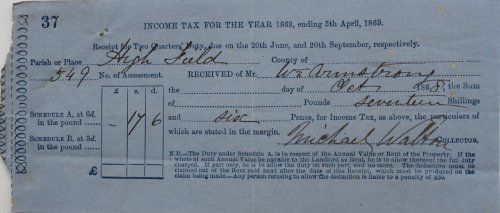 37
INCOME TAX FOR THE YEAR 1868, ending 5th April, 1869.
Receipt for Two Quarters' Duty, due on the 20th June, and 20th September, respectively.
Parish or Place High Field County of
549 No. of Assessment. RECEIVED of Mr. Wm Armstrong
the day of Oct 1868, the Sum
£ s. d.
of Pounds Seventeen Shillings
SCHEDULE A, at 6d. in the pound - 17 6
and six Pence, for Income Tax, as above, the particulars
SCHEDULE B, at 3d. in the pound
of which are stated in the margin. Michael Walton COLLECTOR.
£
N.B.—The Duty under Schedule A is in respect of the Annual Value or Rent of the Property. If the
whole of such Annual Value be payable to the Landlord as Rent, he is to allow thereout the full duty
charged, if part only, he is to allow the duty on such part, and no more. The deduction must be
claimed out of the Rent paid next after the date of this Receipt, which must be produced on the
claim being made.—Any person refusing to allow the deduction is liable to a penalty of £50.